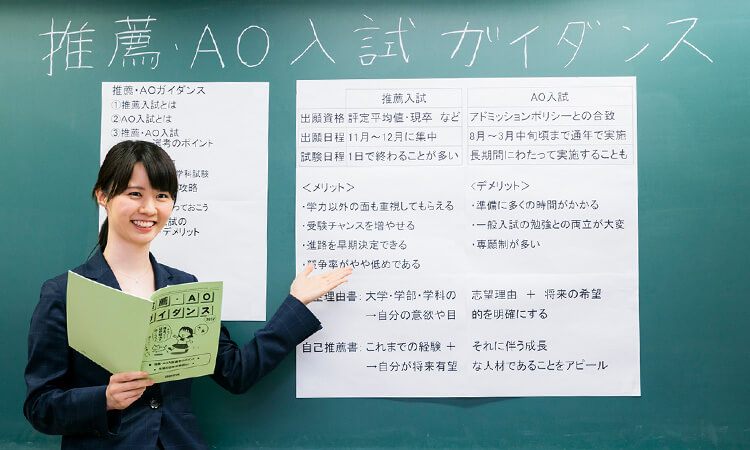 推薦・AO入試 ガイダンス
推薦・AOガイダンス
①推薦入試とは
②AO入試とは
③推薦・AO入試
選考のポイント
学科試験
攻略
っておこう
試の
デメリット
推薦入試 AO入試
出願資格 評定平均値・現卒 など アドミッションポリシーとの合致
出願日程 11月～12月に集中 8月～3月中旬頃まで通年で実施
試験日程 1日で終わることが多い 長期間にわたって実施することも
＜メリット＞
・学力以外の面も重視してもらえる
・受験チャンスを増やせる
・進路を早期決定できる
・競争率がやや低めである
＜デメリット＞
・準備に多くの時間がかかる
・一般入試の勉強との両立が大変
・専願制が多い
理由書：大学・学部・学科の 志望理由 ＋ 将来の希望
→自分の意欲や目 的を明確にする
自己推薦書：これまでの経験＋ それに伴う成長
→自分が将来有望 な人材であることをアピール
薦・AO
ガイダンス